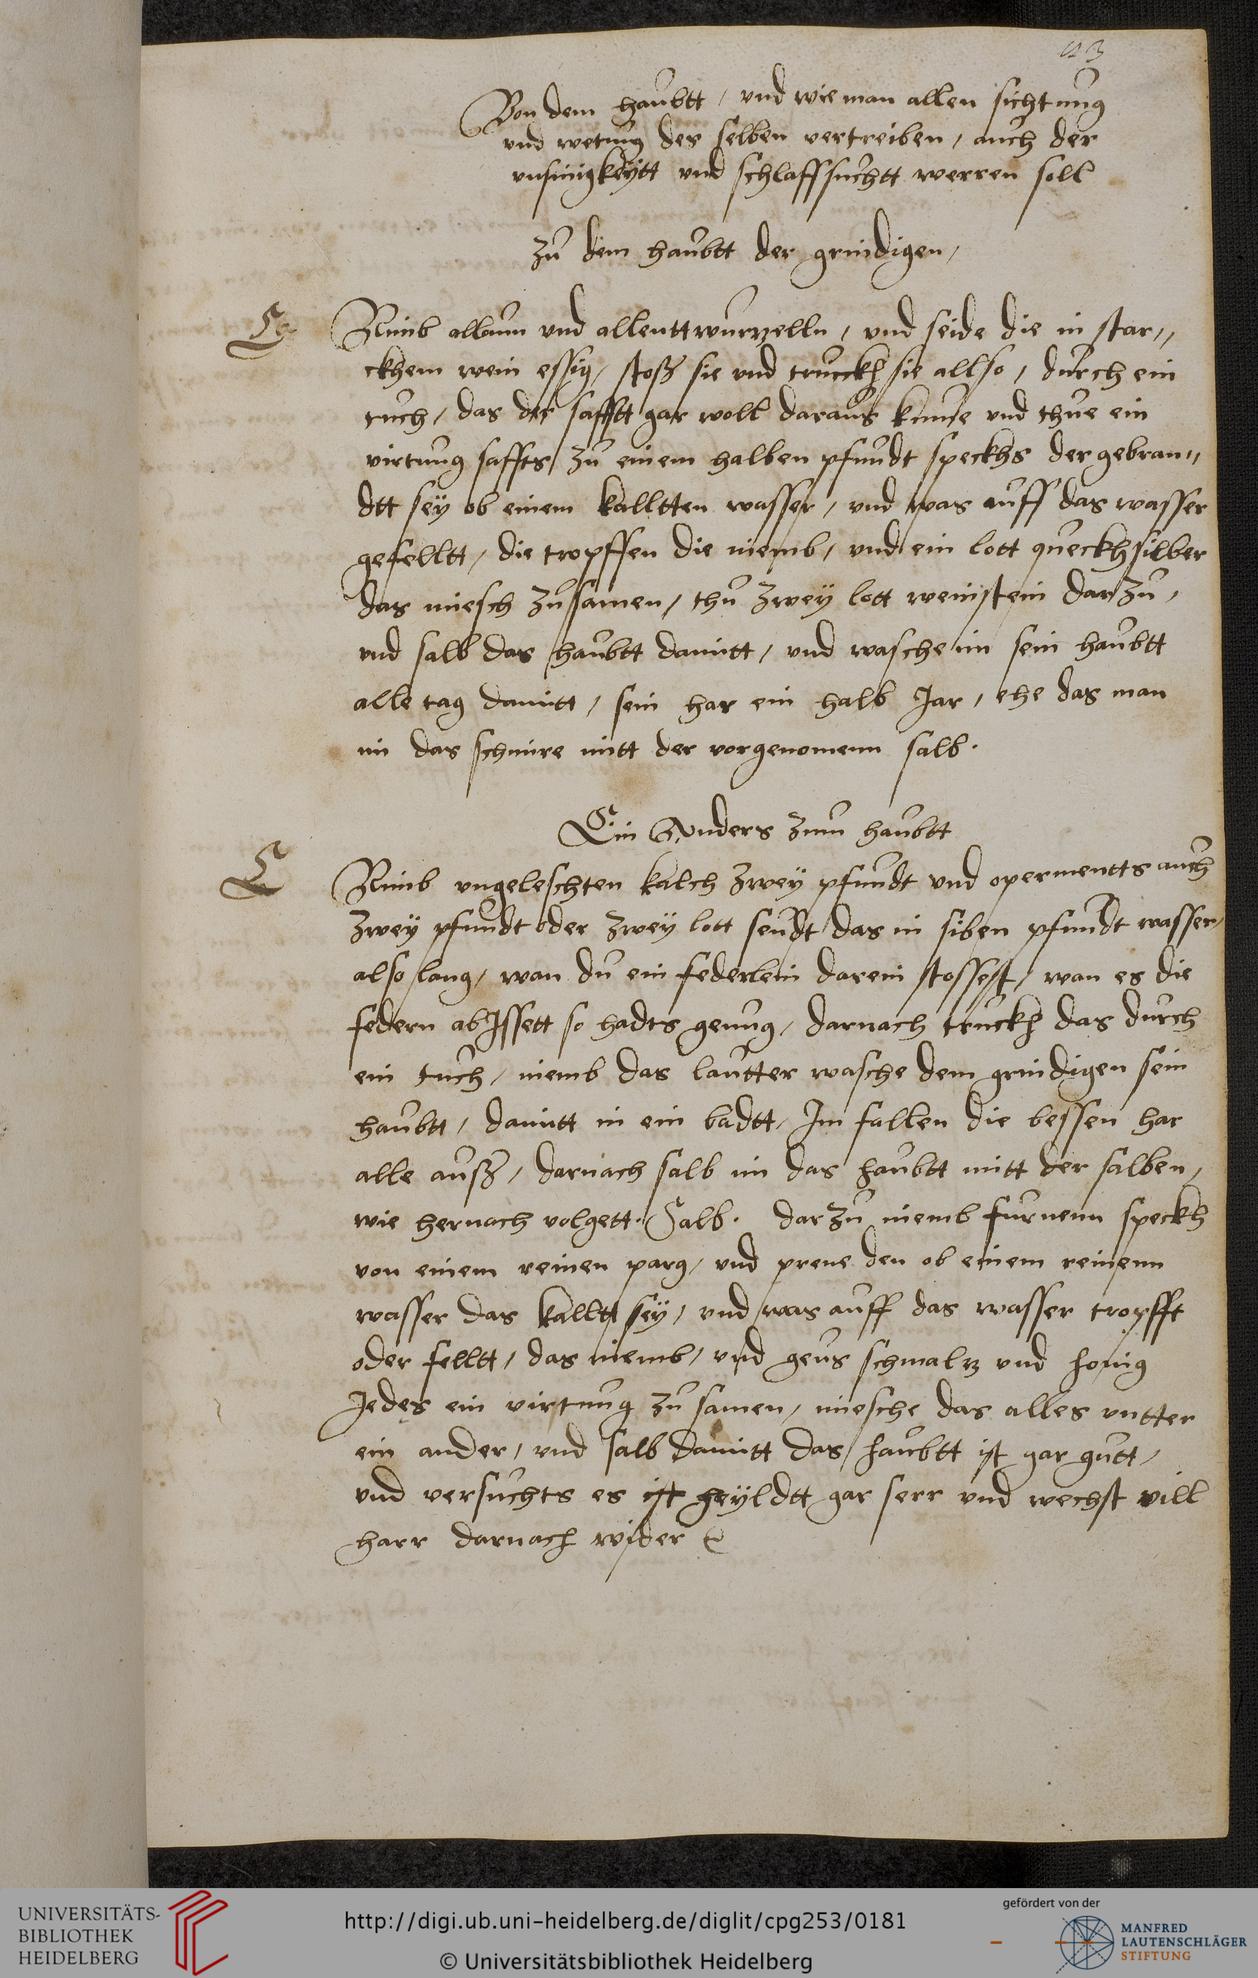 Von dem haubtt / vnd wie man allen sichtung
vnd wetung des selben vertreiben / auch der
vnsinigkeytt vnd schlaffsuchtt werren soll
Zu dem haubtt der grindigen /
Nimb allaun vnd allenttwurzelln / vnd seide die in star„
ckhem wein essig / stoß sie vnd truckh sie allso / durch ein
tuch / das der safftt gar woll daraus kume vnd thue ein
virtung saffts / zu einem halben pfundt speckhs der gebran„
dtt sey ob einem kalltten wasser / vnd was auff das wasser
gefelltt / die tropffen die niemb / vnd ein lott queckhsilber
das miesch zusamen / thu zwey lott weinstein darzu /
vnd salb das haubtt damitt / vnd wasche im sein haubtt
alle tag damitt / sein har ein halb Jar / ehe das man
im das schmire mitt der vorgenomenn salb .
Ein Anders zum haubtt
Nimb vngeleschten kalch zwey pfundt vnd opermentts auch
zwey pfundt oder zwey lott seudt das in siben pfundt wasser /
also lang / wan du ein federlein darein stossest / wan es die
federn ab Jssett so hadts genug / darnach truckh das durch
ein tuch / niemb das lautter wasche dem grindigen sein
haubtt / damitt in ein badtt / Im fallen die bessen har
alle auß / darnach salb im das haubtt mitt der salben /
wie hernach volgett . Salb . dar zu niemb furnenn speckh
von einem reinen parg / vnd prene den ob einem reinenn
wasser das kalltt sey / vnd was auff das wasser tropfft
oder felltt / das niemb / vnd geus schmalz vnd honig
Jedes ein virtung zu samen / miesche das alles vntter
ein ander / vnd salb damitt das haubtt ist gar gutt /
vnd versuchts es ist heyldtt gar serr vnd wechst vill
harr darnach wider
UNIVERSITÄTS-
BIBLIOTHEK
HEIDELBERG
http://digi.ub.uni-heidelberg.de/diglit/cpg253/0181
© Universitätsbibliothek Heidelberg
gefördert von der
MANFRED
LAUTENSCHLÄGER
STIFTUNG